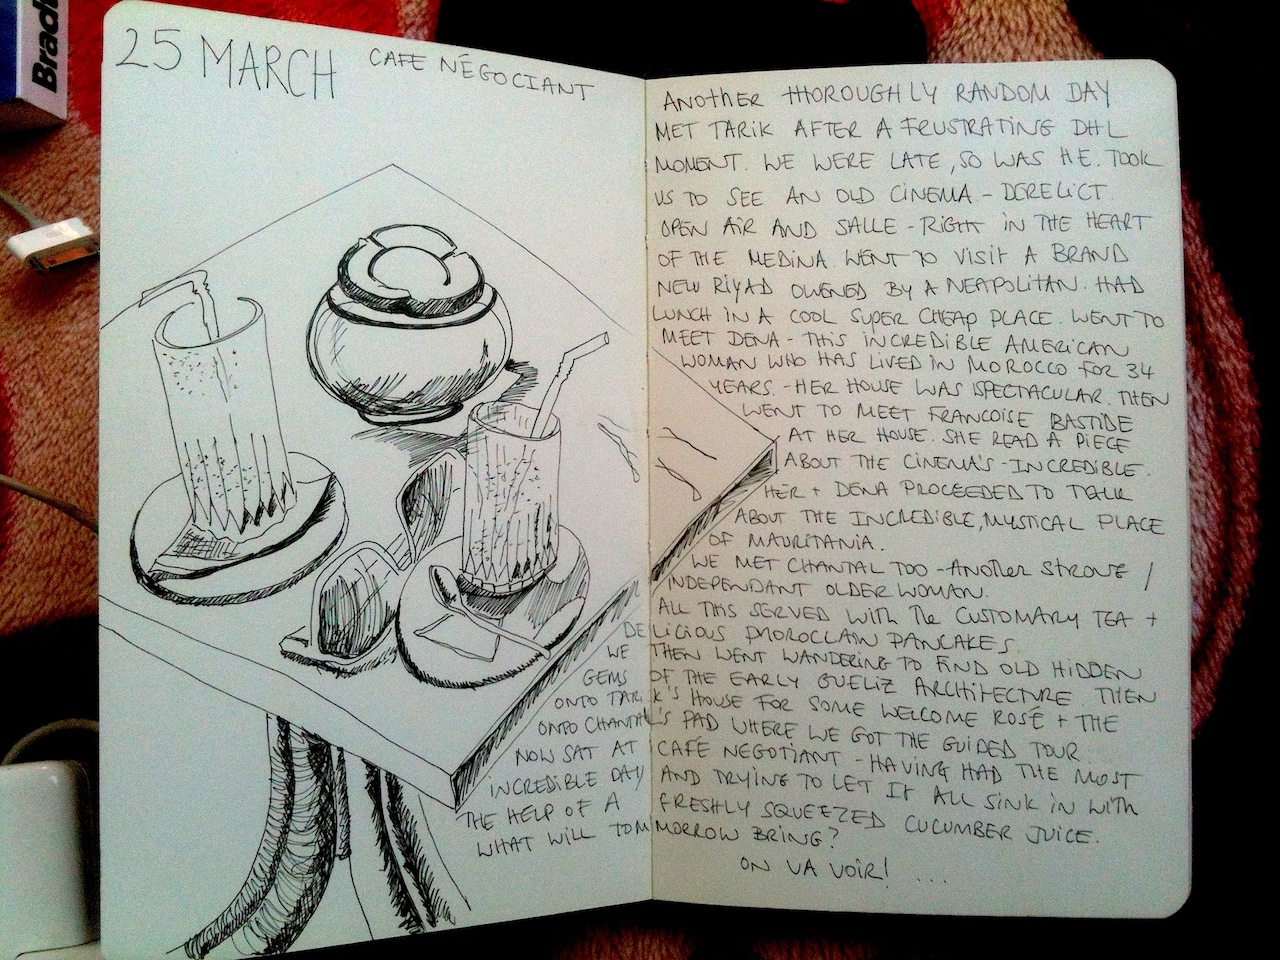 Bradt
25 MARCH
CAFE NÉGOCIANT
ANOTHER THOROUGHLY RANDOM DAY
MET TARIK AFTER A FRUSTRATING DHL
MOMENT. WE WERE LATE, SO WAS HE. TOOK
US TO SEE AN OLD CINEMA - DERELICT.
OPEN AIR AND SALLE - RIGHT IN THE HEART
OF THE MEDINA. WENT TO VISIT A BRAND
NEW RIYAD OWENED BY A NEAPOLITAN. HAD
LUNCH IN A COOL SUPER CHEAP PLACE. WENT TO
MEET DENA - THIS INCREDIBLE AMERICAN
WOMAN WHO HAS LIVED IN MOROCCO FOR 34
YEARS. - HER HOUSE WAS SPECTACULAR. THEN
WENT TO MEET FRANCOISE BASTIDE
AT HER HOUSE. SHE READ A PIECE
ABOUT THE CINEMA'S - INCREDIBLE.
HER + DENA PROCEEDED TO TALK
ABOUT THE INCREDIBLE, MYSTICAL PLACE
OF MAURITANIA.
WE MET CHANTAL TOO - ANOTHER STRONG /
INDEPENDANT OLDER WOMAN.
ALL THIS SERVED WITH THE CUSTOMARY TEA +
DELICIOUS MOROCCAN PANCAKES.
WE THEN WENT WANDERING TO FIND OLD HIDDEN
GEMS OF THE EARLY GUELIZ ARCHITECTURE. THEN
ONTO TARIK'S HOUSE FOR SOME WELCOME ROSÉ + THE
ONTO CHANTAL'S PAD WHERE WE GOT THE GUIDED TOUR
NOW SAT AT CAFE NEGOTIANT - HAVING HAD THE MOST
INCREDIBLE DAY AND TRYING TO LET IT ALL SINK IN WITH
THE HELP OF A FRESHLY SQUEEZED CUCUMBER JUICE.
WHAT WILL TOMMORROW BRING?
ON VA VOIR! ...